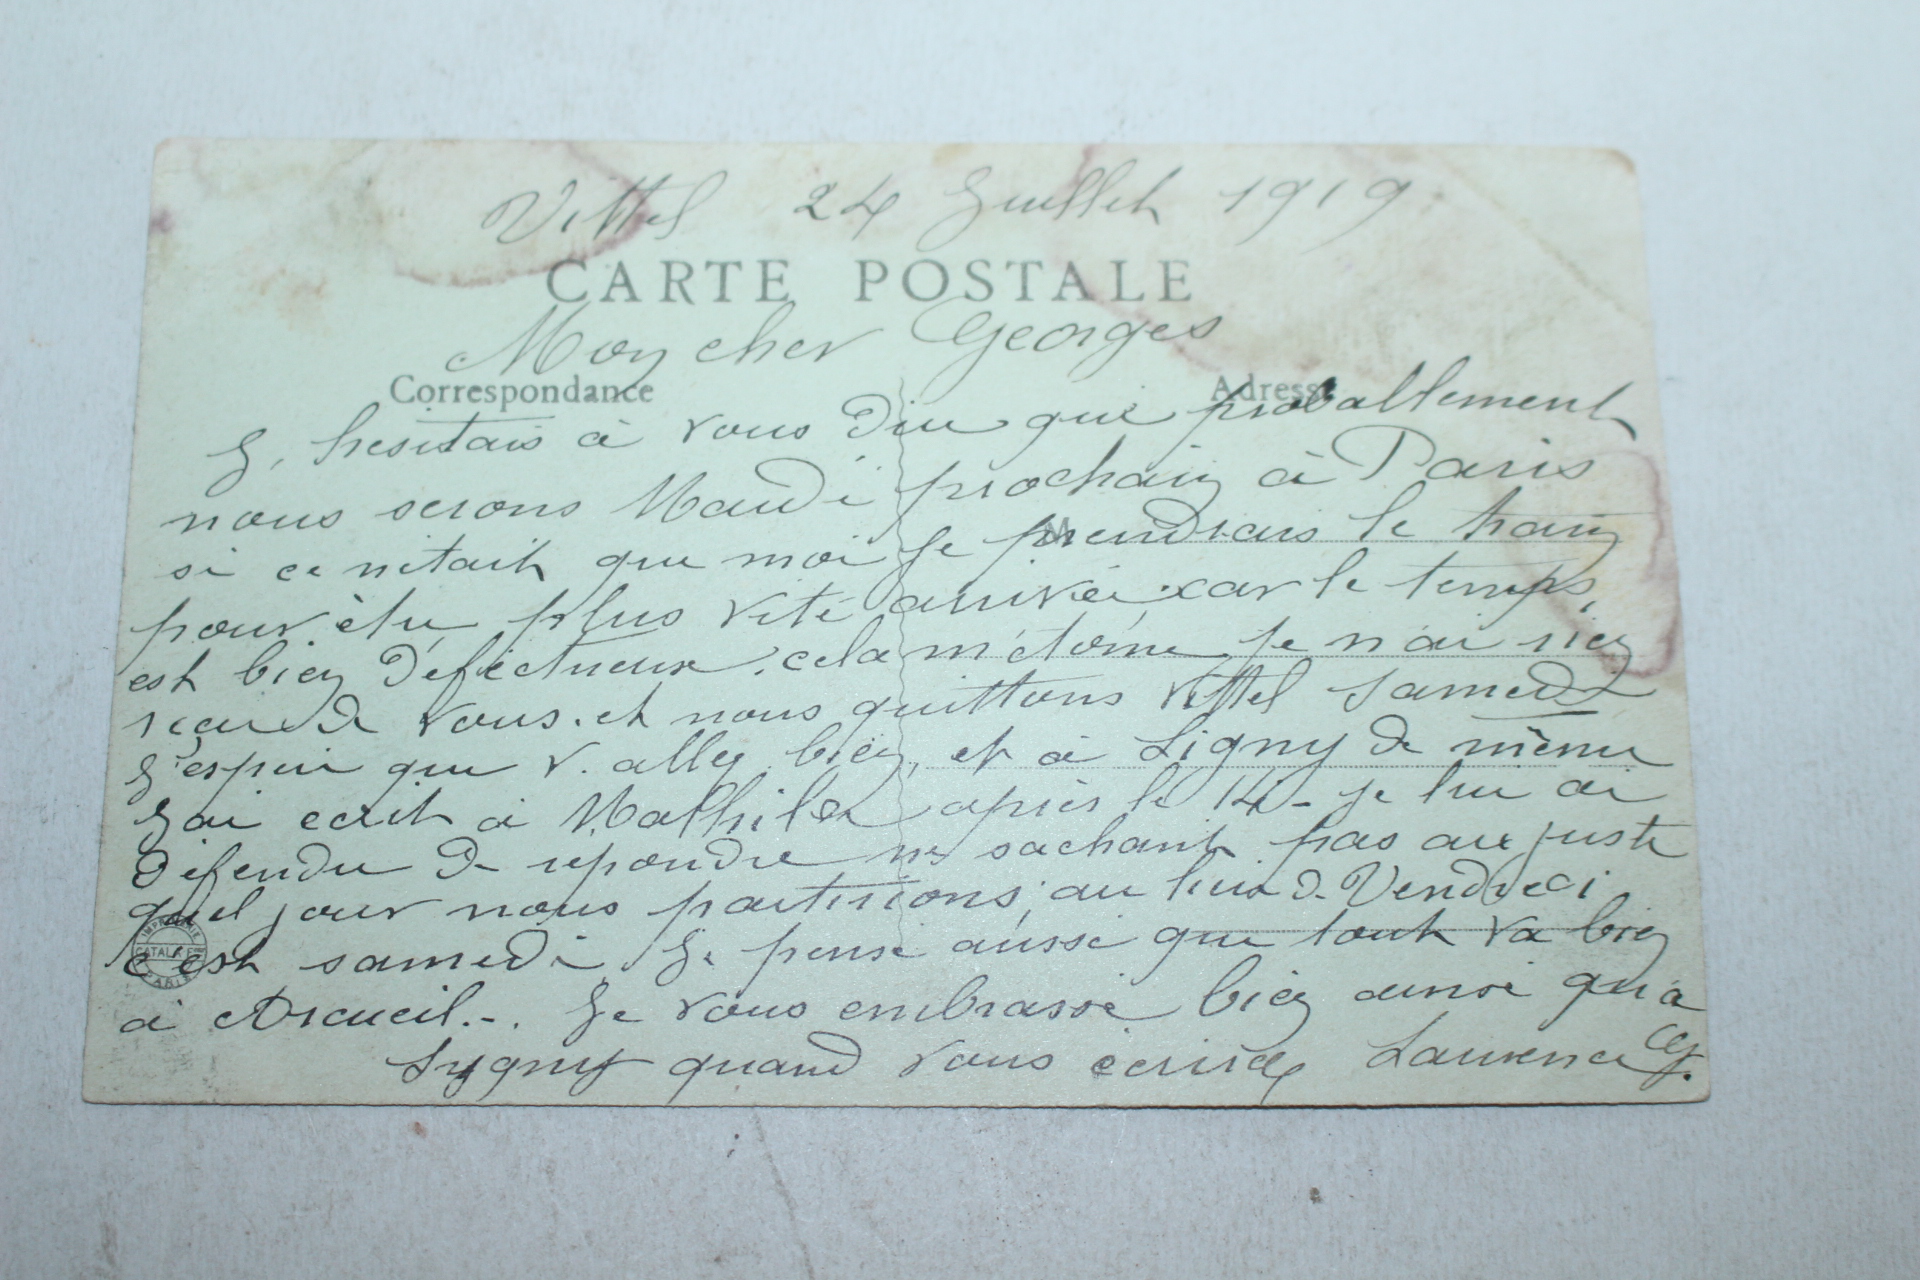 Vittel 24 Juillet 1919
CARTE POSTALE
Mon cher Georges
Correspondance Adresse
J, hesitais à vous dire que proballement
nous serons Mardi prochain à Paris
M
si ce nétait que moi je prendrais le train
pour être plus vite arrivée car le temps
est bien défectueux. cela m'étonne je n'ai rien
recu de vous. et nous quittons Vittel samedi
J'espère que v. allez bien, et à Ligny de même
J'ai ecrit à Mathilde après le 14 - je lui ai
défendu de repondre ne sachant pas au juste
quel jour nous partirions, au lieu de Vendredi
c'est samedi Je pense aussi que tout va bien
IMPRIMERIE
CATALA
PARIS
à Arcueil. -. Je vous embrasse bien ainsi qu'a
Lygny quand vous écrirez Laurence